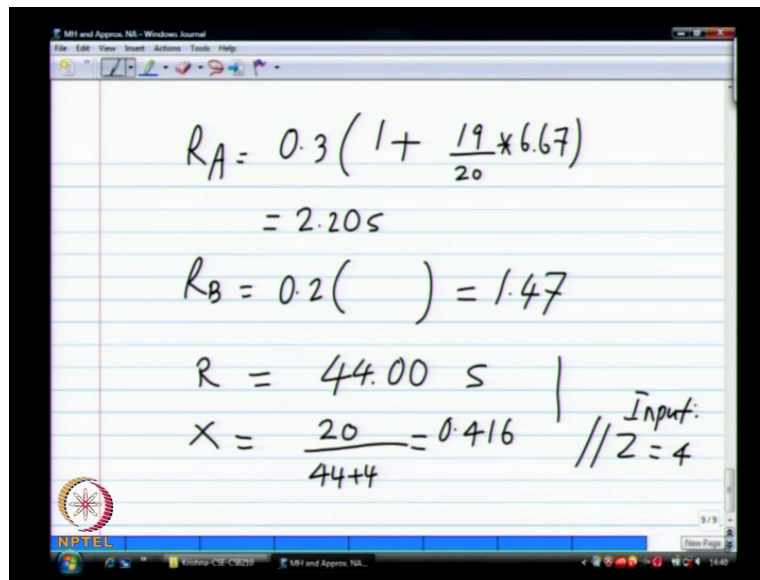 MH and Approx. NA - Windows Journal
File Edit View Insert Actions Tools Help
R_A = 0.3 ( 1 + 19/20 * 6.67)
= 2.20s
R_B = 0.2 (     ) = 1.47
R = 44.00 s
X = 20/(44+4) = 0.416 // Input: Z = 4
9/9
New Page
NPTEL
Krishna-CSE-CS6210
MH and Approx. NA...
14:40